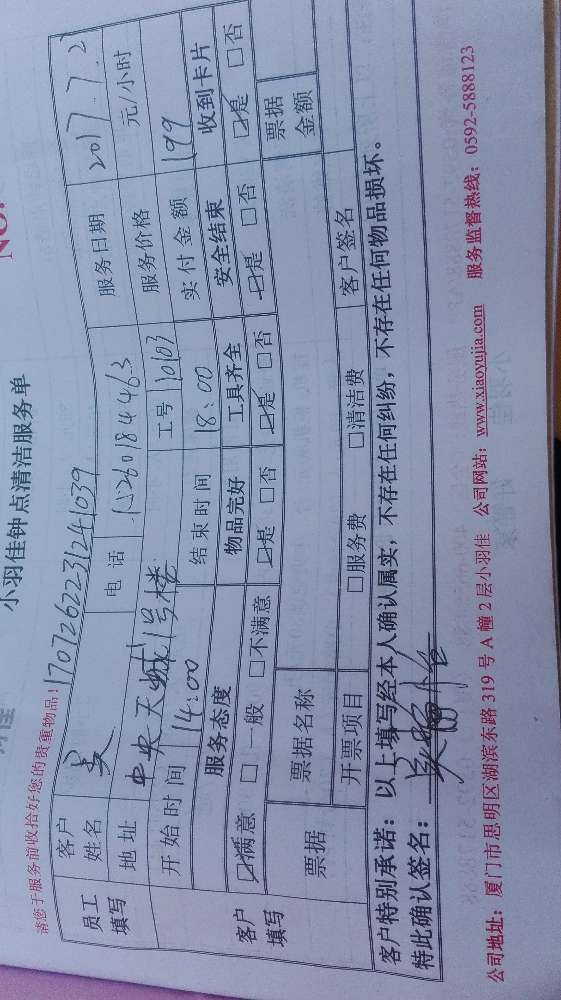 NO.
小羽佳钟点清洁服务单
请您于服务前收拾好您的贵重物品! 170726223124039
员工填写 客户姓名 电话 服务日期 2017.7.2
地址 中央天城1号楼 工号 10103 服务价格 元/小时
开始时间 14:00 结束时间 18:00 实付金额 199
客户填写 服务态度 物品完好 工具齐全 安全结束 收到卡片
☑满意 □一般 □不满意 ☑是 □否 ☑是 □否 ☑是 □否 ☑是 □否
票据 票据名称 票据金额
开票项目 □服务费 □清洁费 客户签名
客户特别承诺:以上填写经本人确认属实,不存在任何纠纷,不存在任何物品损坏。
特此确认签名:
公司地址:厦门市思明区湖滨东路 319 号 A 幢 2 层小羽佳 公司网站:www.xiaoyujia.com 服务监督热线:0592-5888123